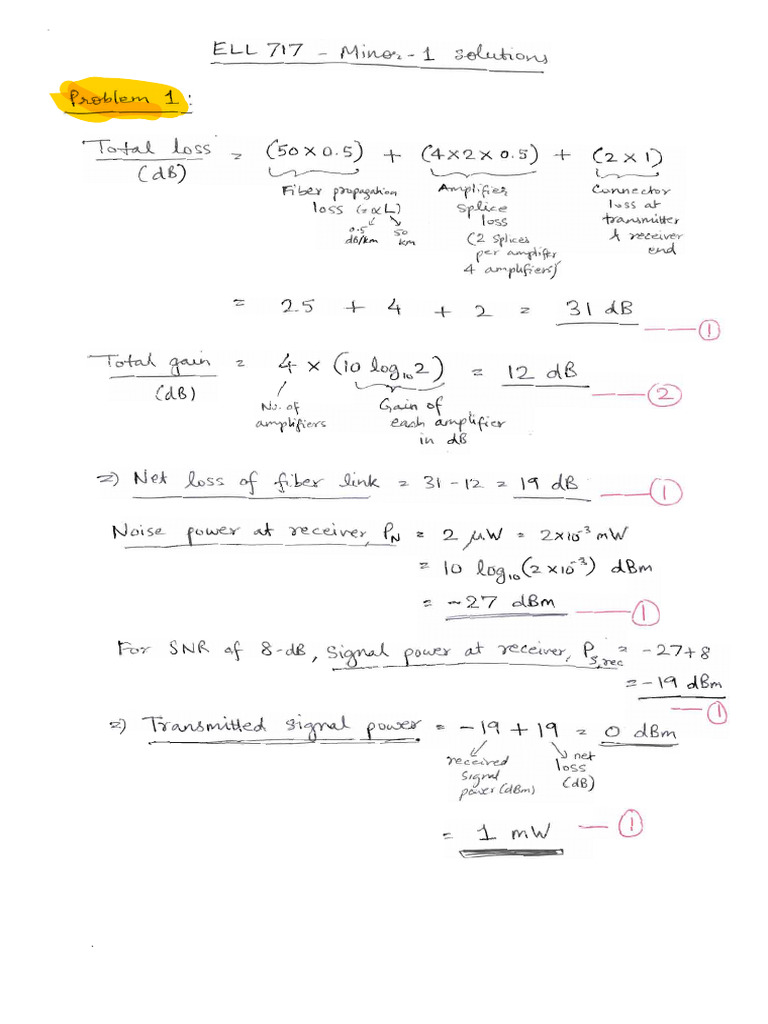 ELL 717 - Minor-1 solutions
Problem 1:
Total loss (dB) = (50 x 0.5) + (4 x 2 x 0.5) + (2 x 1)
Fiber propagation loss (= αL) 0.5 dB/km 50 km
Amplifier splice loss (2 splices per amplifier 4 amplifiers)
Connector loss at transmitter & receiver end
= 25 + 4 + 2 = 31 dB — ①
Total gain (dB) = 4 x (10 log₁₀2) = 12 dB — ②
No. of amplifiers
Gain of each amplifier in dB
=) Net loss of fiber link = 31 - 12 = 19 dB — ①
Noise power at receiver, P_N = 2 μW = 2x10⁻³ mW
= 10 log₁₀(2x10⁻³) dBm
= -27 dBm — ①
For SNR of 8-dB, signal power at receiver, P_s,rec = -27+8
= -19 dBm — ①
=) Transmitted signal power = -19 + 19 = 0 dBm
received signal power (dBm)
net loss (dB)
= 1 mW — ①